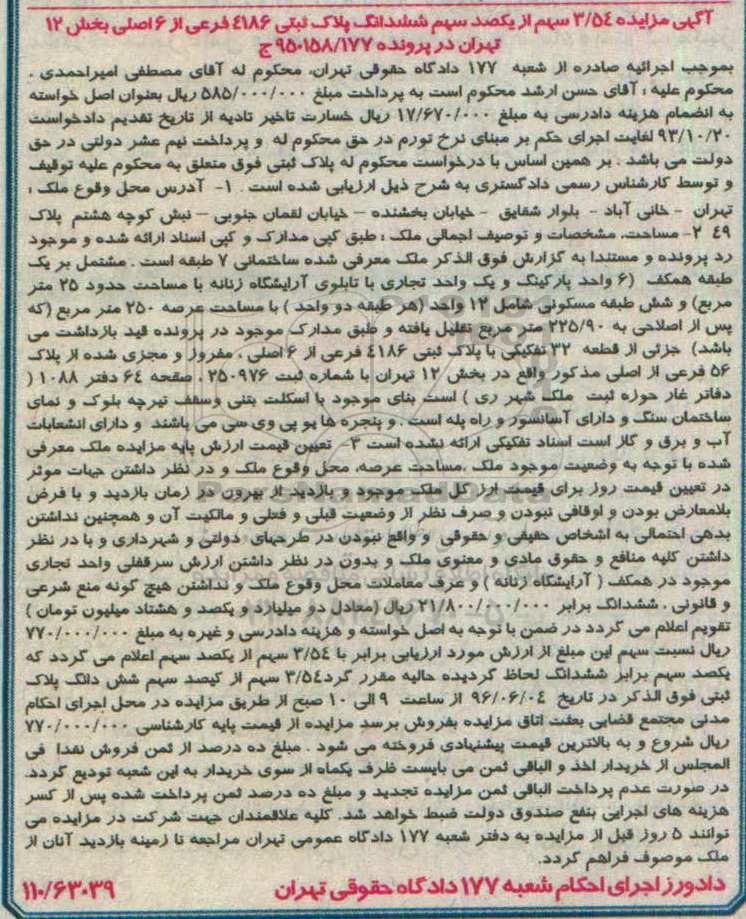 آگهی مزایده ۳/۵۴ سهم از یکصد سهم ششدانگ پلاک ثبتی ۴۱۸۶ فرعی از ۶ اصلی بخش ۱۲
تهران در پرونده ۹۵۰۱۵۸/۱۷۷ ج
بموجب اجرائیه صادره از شعبه ۱۷۷ دادگاه حقوقی تهران، محکوم له آقای مصطفی امیراحمدی .
محکوم علیه : آقای حسن ارشد محکوم است به پرداخت مبلغ ۵۸۵/۰۰۰/۰۰۰ ریال بعنوان اصل خواسته
به انضمام هزینه دادرسی به مبلغ ۱۷/۶۷۰/۰۰۰ ریال خسارت تاخیر تادیه از تاریخ تقدیم دادخواست
۹۳/۱۰/۲۰ لغایت اجرای حکم بر مبنای نرخ تورم در حق محکوم له و پرداخت نیم عشر دولتی در حق
دولت می باشد . بر همین اساس با درخواست محکوم له پلاک ثبتی فوق متعلق به محکوم علیه توقیف
و توسط کارشناس رسمی دادگستری به شرح ذیل ارزیابی شده است . ۱- آدرس محل وقوع ملک :
تهران - خانی آباد - بلوار شقایق - خیابان بخشنده – خیابان لقمان جنوبی – نبش کوچه هشتم پلاک
۴۹ ۲- مساحت، مشخصات و توصیف اجمالی ملک : طبق کپی مدارک و کپی اسناد ارائه شده و موجود
رد پرونده و مستندا به گزارش فوق الذکر ملک معرفی شده ساختمانی ۷ طبقه است . مشتمل بر یک
طبقه همکف (۶ واحد پارکینگ و یک واحد تجاری با تابلوی آرایشگاه زنانه با مساحت حدود ۲۵ متر
مربع) و شش طبقه مسکونی شامل ۱۲ واحد (هر طبقه دو واحد ) با مساحت عرصه ۲۵۰ متر مربع (که
پس از اصلاحی به ۲۲۵/۹۰ متر مربع تقلیل یافته و طبق مدارک موجود در پرونده قید بازداشت می
باشد) جزئی از قطعه ۳۲ تفکیکی با پلاک ثبتی ۴۱۸۶ فرعی از ۶ اصلی ، مفروز و مجزی شده از پلاک
۵۶ فرعی از اصلی مذکور واقع در بخش ۱۲ تهران با شماره ثبت ۲۵۰۹۷۶ ، صفحه ۶۴ دفتر ۱۰۸۸ (
دفاتر غار حوزه ثبت ملک شهر ری ) است بنای موجود با اسکلت بتنی وسقف تیرچه بلوک و نمای
ساختمان سنگ و دارای آسانسور و راه پله است . و پنجره ها یو پی وی سی می باشند و دارای انشعابات
آب و برق و گاز است اسناد تفکیکی ارائه نشده است ۳- تعیین قیمت ارزش پایه مزایده ملک معرفی
شده با توجه به وضعیت موجود ملک ،مساحت عرصه، محل وقوع ملک و در نظر داشتن جهات موثر
در تعیین قیمت روز برای قیمت ارز کل ملک موجود و بازدید از بیرون در زمان بازدید و با فرض
بلامعارض بودن و اوقافی نبودن و صرف نظر از وضعیت قبلی و فعلی و مالکیت آن و همچنین نداشتن
بدهی احتمالی به اشخاص حقیقی و حقوقی و واقع نبودن در طرحهای دولتی و شهرداری و با در نظر
داشتن کلیه منافع و حقوق مادی و معنوی ملک و بدون در نظر داشتن ارزش سرقفلی واحد تجاری
موجود در همکف ( آرایشگاه زنانه ) و عرف معاملات محل وقوع ملک و نداشتن هیچ گونه منع شرعی
و قانونی ، ششدانگ برابر ۲۱/۸۰۰/۰۰۰/۰۰۰ ریال (معادل دو میلیارد و یکصد و هشتاد میلیون تومان )
تقویم اعلام می گردد در ضمن با توجه به اصل خواسته و هزینه دادرسی و غیره به مبلغ ۷۷۰/۰۰۰/۰۰۰
ریال نسبت سهم این مبلغ از ارزش مورد ارزیابی برابر با ۳/۵۴ سهم از یکصد سهم اعلام می گردد که
یکصد سهم برابر ششدانگ لحاظ گردیده حالیه مقرر گرد۳/۵۴ سهم از کیصد سهم شش دانگ پلاک
ثبتی فوق الذکر در تاریخ ۹۶/۰۶/۰۴ از ساعت ۹ الی ۱۰ صبح از طریق مزایده در محل اجرای احکام
مدنی مجتمع قضایی بعثت اتاق مزایده بفروش برسد مزایده از قیمت پایه کارشناسی ۷۷۰/۰۰۰/۰۰۰
ریال شروع و به بالاترین قیمت پیشنهادی فروخته می شود . مبلغ ده درصد از ثمن فروش نقدا فی
المجلس از خریدار اخذ و الباقی ثمن می بایست ظرف یکماه از سوی خریدار به این شعبه تودیع گردد.
در صورت عدم پرداخت الباقی ثمن مزایده تجدید و مبلغ ده درصد ثمن پرداخت شده پس از کسر
هزینه های اجرایی بنفع صندوق دولت ضبط خواهد شد. کلیه علاقمندان جهت شرکت در مزایده می
توانند ۵ روز قبل از مزایده به دفتر شعبه ۱۷۷ دادگاه عمومی تهران مراجعه تا زمینه بازدید آنان از
ملک موصوف فراهم گردد.
دادورز اجرای احکام شعبه ۱۷۷ دادگاه حقوقی تهران
۱۱۰/۶۳۰۳۹